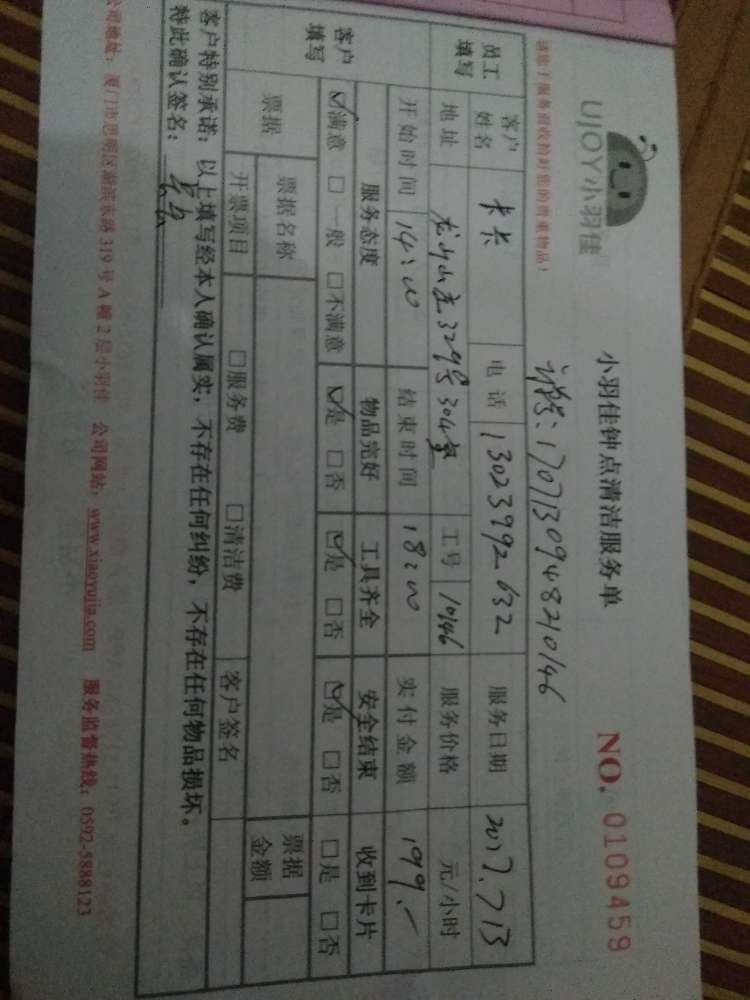 UJOY小羽佳
小羽佳钟点清洁服务单
NO. 0109459
请您于服务前收拾好您的贵重物品！
1707130948210146
员工填写
客户姓名 卡卡 电话 13023992632 服务日期 2017.713
地址 龙山山庄329号304室 工号 10146 服务价格 元/小时
开始时间 14:00 结束时间 18:00 实付金额 199.-
客户填写
服务态度 物品完好 工具齐全 安全结束 收到卡片
☑满意 □一般 □不满意 ☑是 □否 ☑是 □否 ☑是 □否 □是 □否
票据 票据名称 票据金额
开票项目 □服务费 □清洁费 客户签名
客户特别承诺：以上填写经本人确认属实，不存在任何纠纷，不存在任何物品损坏。
特此确认签名：
公司地址：厦门市思明区湖滨东路319号A幢2层小羽佳 公司网站：www.xiaoyujia.com 服务监督热线：0592-5888123